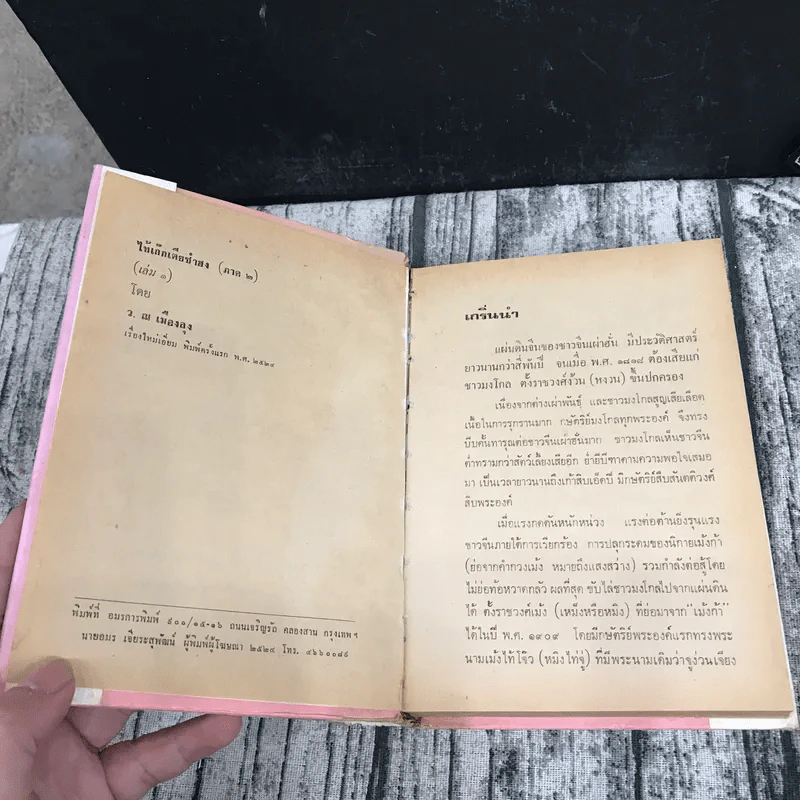 ไท้เก็กเตียซำฮง (ภาค ๒)
(เล่ม ๑)
โดย
ว. ณ เมืองลุง
เรื่องใหม่เอี่ยม พิมพ์ครั้งแรก พ.ศ. ๒๕๒๔
พิมพ์ที่ อมรการพิมพ์ ๙๐๐/๑๕-๑๖ ถนนเจริญรัถ คลองสาน กรุงเทพฯ
นายอมร เจียระสุพัฒน์ ผู้พิมพ์ผู้โฆษณา ๒๕๒๔ โทร. ๔๖๖๐๐๘๙
เกริ่นนำ
แผ่นดินจีนของชาวจีนเผ่าฮั่น มีประวัติศาสตร์
ยาวนานกว่าสี่พันปี จนเมื่อ พ.ศ. ๑๘๑๘ ต้องเสียแก่
ชาวมงโกล ตั้งราชวงศ์ง้วน (หงวน) ขึ้นปกครอง
เนื่องจากต่างเผ่าพันธุ์ และชาวมงโกลสูญเสียเลือด
เนื้อในการรุกรานมาก กษัตริย์มงโกลทุกพระองค์ จึงทรง
บีบคั้นทารุณต่อชาวจีนเผ่าฮั่นมาก ชาวมงโกลเห็นชาวจีน
ต่ำทรามกว่าสัตว์เลี้ยงเสียอีก ย่ำยีบีฑาตามความพอใจเสมอ
มา เป็นเวลายาวนานถึงเก้าสิบเอ็ดปี มีกษัตริย์สืบสันตติวงศ์
สิบพระองค์
เมื่อแรงกดดันหนักหน่วง แรงต่อต้านยิ่งรุนแรง
ชาวจีนภายใต้การเรียกร้อง การปลุกระดมของนิกายเม้งก้า
(ย่อจากคำกวงเม้ง หมายถึงแสงสว่าง) รวมกำลังต่อสู้โดย
ไม่ย่อท้อหวาดกลัว ผลที่สุด ขับไล่ชาวมงโกลไปจากแผ่นดิน
ได้ ตั้งราชวงศ์เม้ง (เหม็งหรือหมิง) ที่ย่อมาจาก"เม้งก้า"
ได้ในปี พ.ศ. ๑๙๐๙ โดยมีกษัตริย์พระองค์แรกทรงพระ
นามเม้งไท้โจ๊ว (หมิงไท่จู่) ที่มีพระนามเดิมว่าจูง่วนเจียง